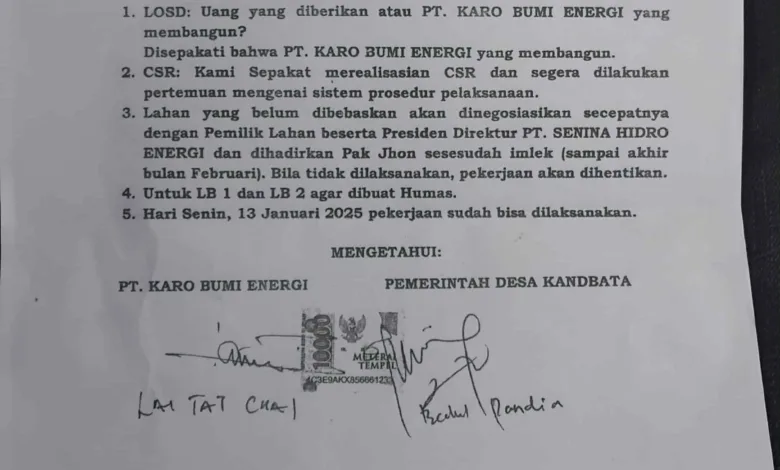 1. LOSD: Uang yang diberikan atau PT. KARO BUMI ENERGI yang
membangun?
Disepakati bahwa PT. KARO BUMI ENERGI yang membangun.
2. CSR: Kami Sepakat merealisasian CSR dan segera dilakukan
pertemuan mengenai sistem prosedur pelaksanaan.
3. Lahan yang belum dibebaskan akan dinegosiasikan secepatnya
dengan Pemilik Lahan beserta Presiden Direktur PT. SENINA HIDRO
ENERGI dan dihadirkan Pak Jhon sesesudah imlek (sampai akhir
bulan Februari). Bila tidak dilaksanakan, pekerjaan akan dihentikan.
4. Untuk LB 1 dan LB 2 agar dibuat Humas.
5. Hari Senin, 13 Januari 2025 pekerjaan sudah bisa dilaksanakan.
MENGETAHUI:
PT. KARO BUMI ENERGI PEMERINTAH DESA KANDBATA
10000
METERAI
TEMPEL
LAI TAT CHAI
Pandia